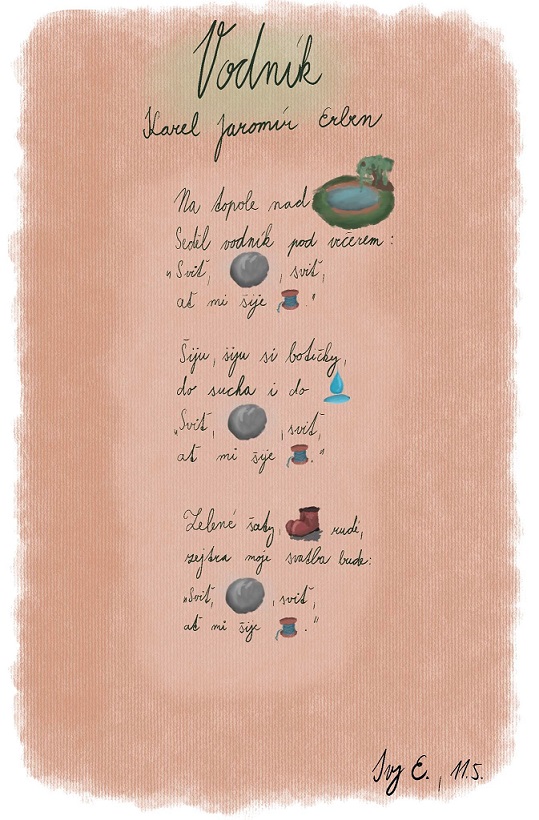 Vodník
Karel Jaromír Erben
Na topole nad
Seděl vodník pod večerem:
„Sviť, , sviť,
ať mi šije ."
Šiju, šiju si botičky,
do sucha i do
„Sviť, , sviť,
ať mi šije ."
Zelené šaty, rudé,
zejtra moje svatba bude:
„Sviť, , sviť,
ať mi šije ."
E., 11.S.